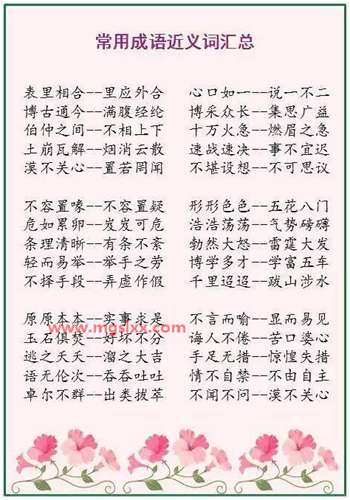 常用成语近义词汇总
表里相合--里应外合 心口如一--说一不二
博古通今--满腹经纶 博采众长--集思广益
伯仲之间--不相上下 十万火急--燃眉之急
土崩瓦解--烟消云散 速战速决--事不宜迟
漠不关心--置若罔闻 不堪设想--不可思议
不容置喙--不容置疑 形形色色--五花八门
危如累卵--岌岌可危 浩浩荡荡--气势磅礴
条理清晰--有条不紊 勃然大怒--雷霆大发
轻而易举--举手之劳 博学多才--学富五车
不择手段--弄虚作假 千里迢迢--跋山涉水
原原本本--实事求是 不言而喻--显而易见
www.mgslxx.com
玉石俱焚--好坏不分 诲人不倦--苦口婆心
逃之夭夭--溜之大吉 手足无措--惊惶失措
语无伦次--吞吞吐吐 情不自禁--不由自主
卓尔不群--出类拔萃 不闻不问--漠不关心